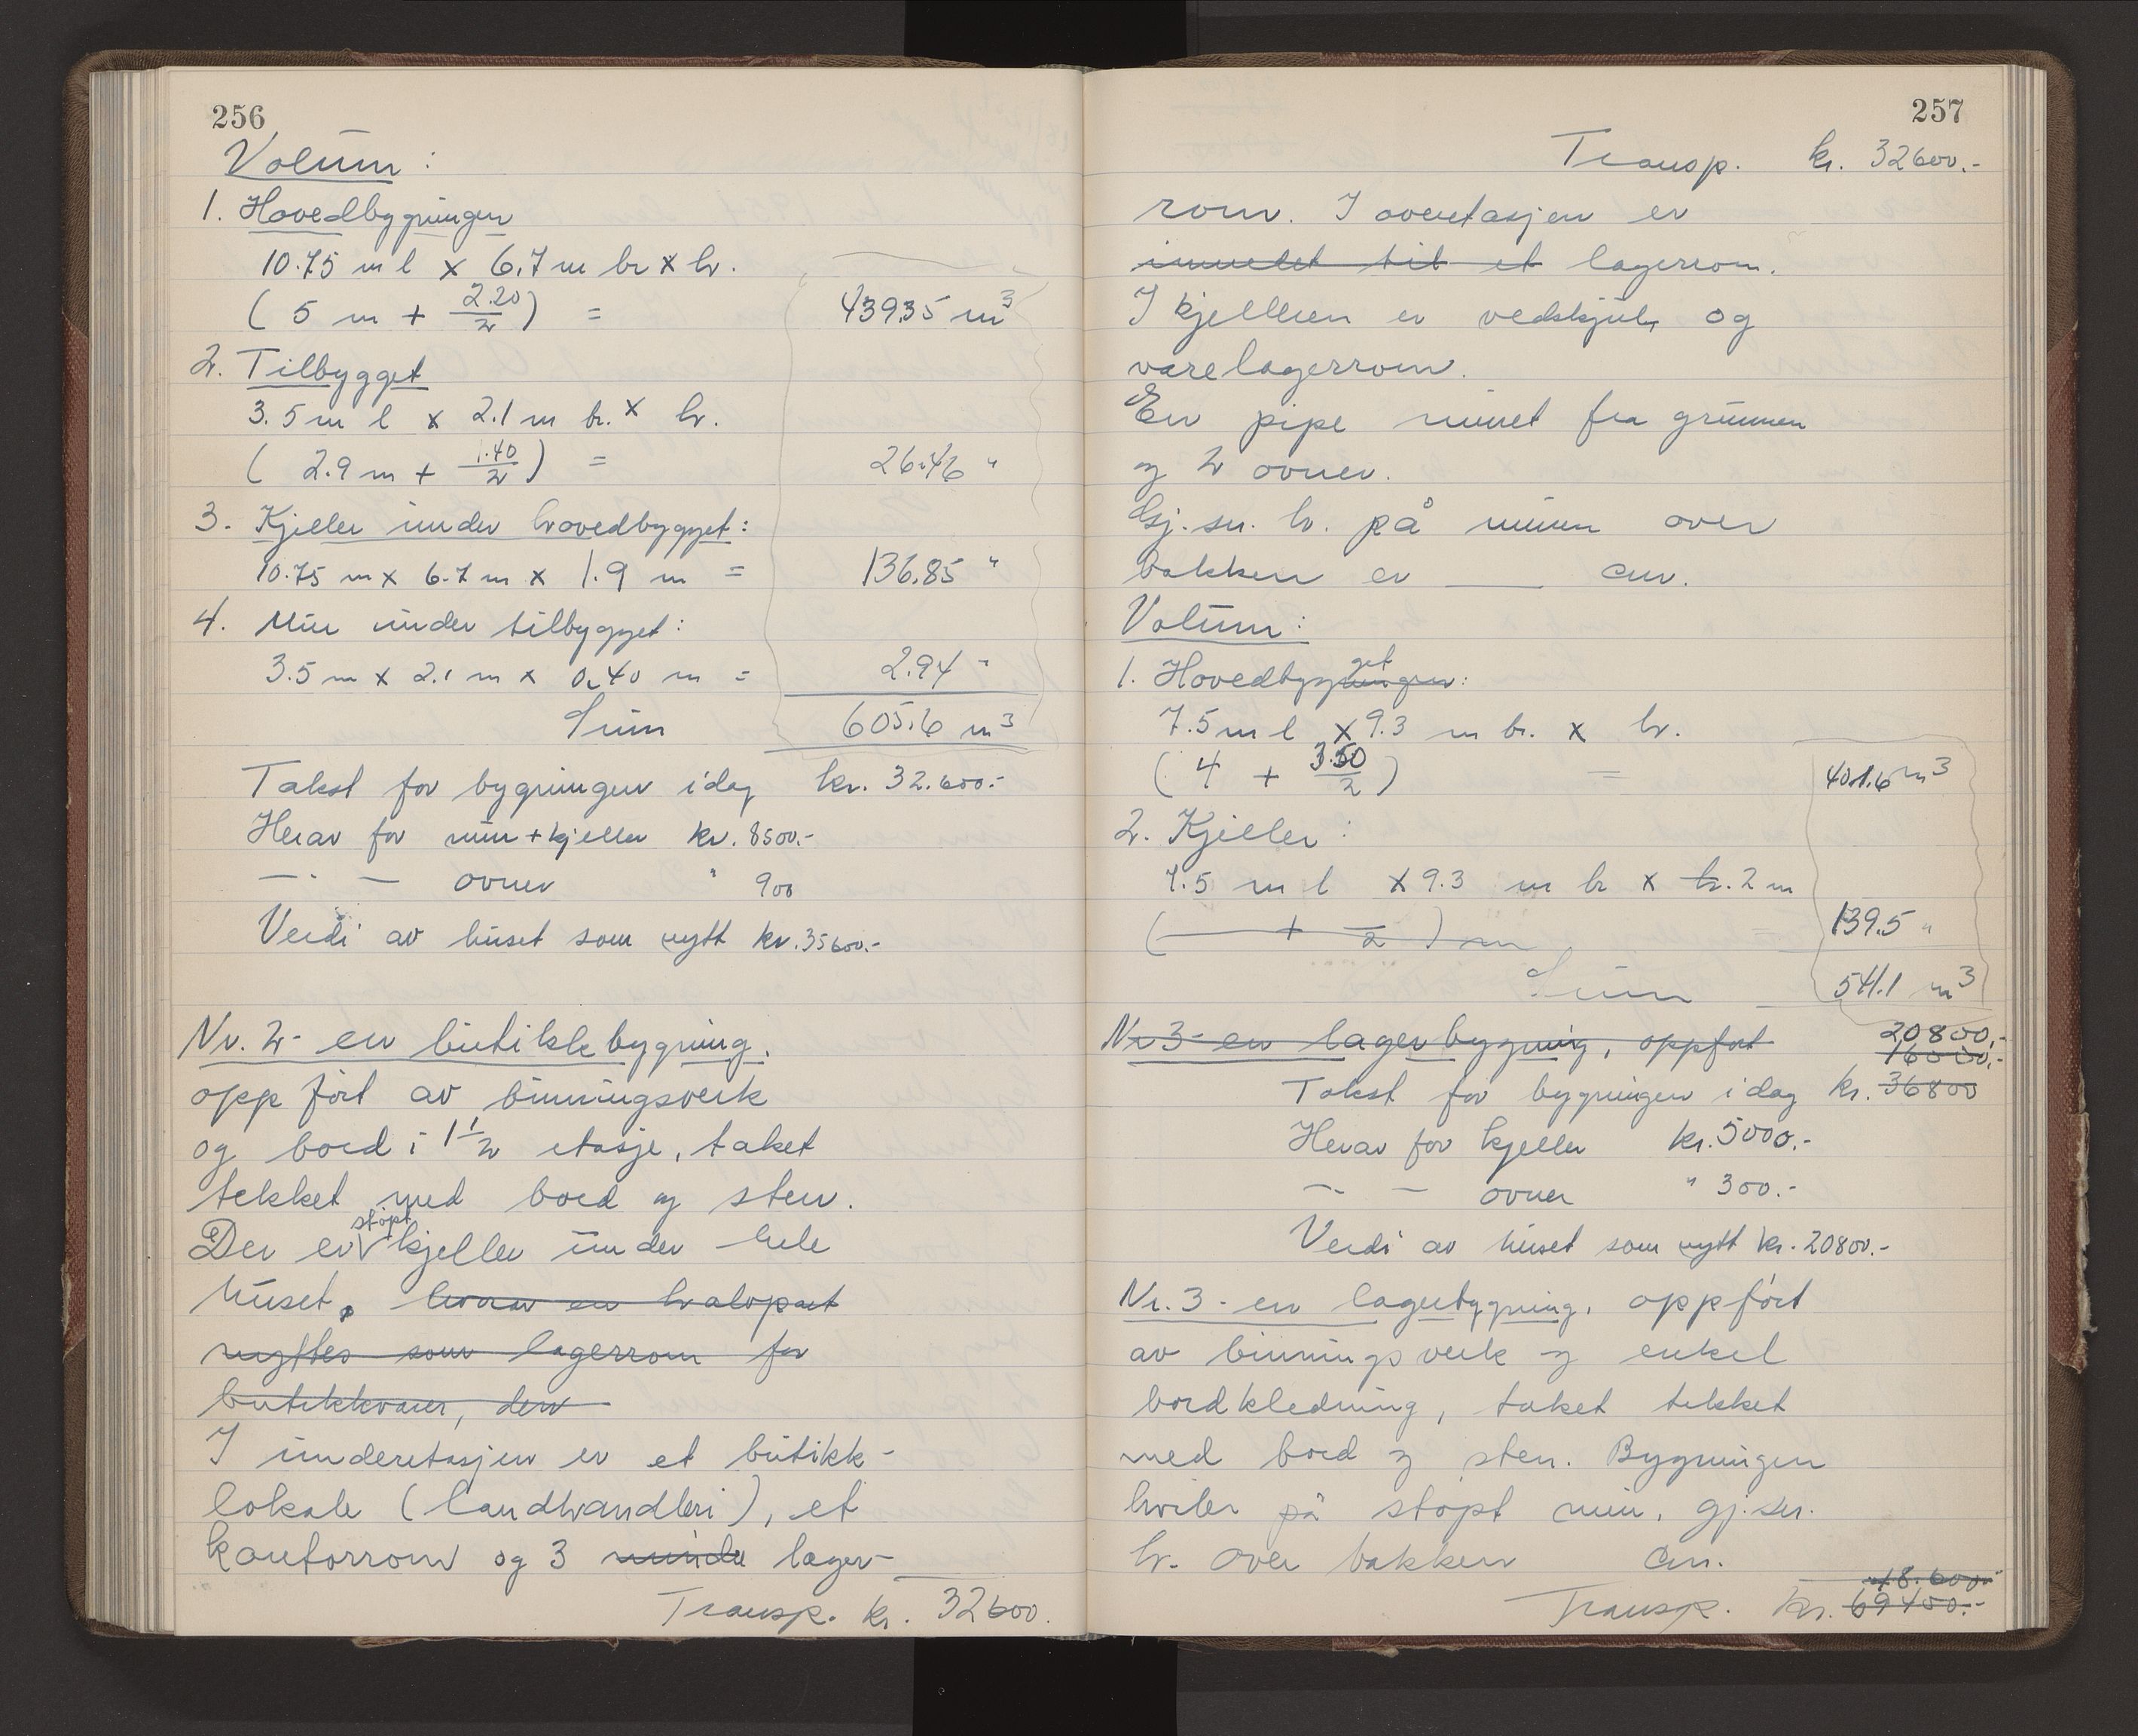 256
Volum:
1. Hovedbygningen
10.75 m l x 6.7 m br x h.
( 5 m + 2.20/2 ) = 439.35 m³
2. Tilbygget
3.5 m l x 2.1 m br. x h.
( 2.9 m + 1.40/2 ) = 26.46 "
3. Kjeller under hovedbygget:
10.75 m x 6.7 m x 1.9 m = 136.85 "
4. Mur under tilbygget:
3.5 m x 2.1 m x 0.40 m = 2.94 "
Sum 605.6 m³
Takst for bygningen idag kr. 32.600.-
Herav for mur + kjeller kr. 8500.-
—"— ovner " 900
Verdi av huset som nytt kr. 35600.-
Nr. 2 - en butikkbygning,
oppført av binningsverk
og bord i 1 1/2 etasje, taket
tekket med bord og sten.
Der er støpt kjeller under hele
huset. hvorav en halvpart
nyttes som lagerrom for
butikkvarer, den
I underetasjen er et butikk-
lokale (landhandleri), et
kontorrom og 3 mindre lager-
Transp. kr. 32600.
257
Transp. kr. 32600.-
rom. I overetasjen er
innredet til et lagerrom.
I kjelleren er vedskjul, og
varelagerrom.
En pipe muret fra grunnen
og 2 ovner.
Gj.sn. h. på muren over
bakken er ___ cm.
Volum:
1. Hovedbygningen get:
7.5 m l x 9.3 m br. x h.
( 4 + 3.50/2 ) = 401.6 m³
2. Kjeller:
7.5 m l x 9.3 m br x h. 2 m
( + /2 ) m = 139.5 "
Sum 541.1 m³
Nr 3 - en lagerbygning, oppført
20800.-
16000.-
Takst for bygningen idag kr. 36800
Herav for kjeller kr. 5000.-
—"— ovner " 300.-
Verdi av huset som nytt kr. 20800.-
Nr. 3 - en lagerbygning, oppført
av binningsverk og enkel
bordkledning, taket tekket
med bord og sten. Bygningen
hviler på støpt mur, gj.sn.
h. over bakken cm.
18.600
Transp. kr. 69400.-